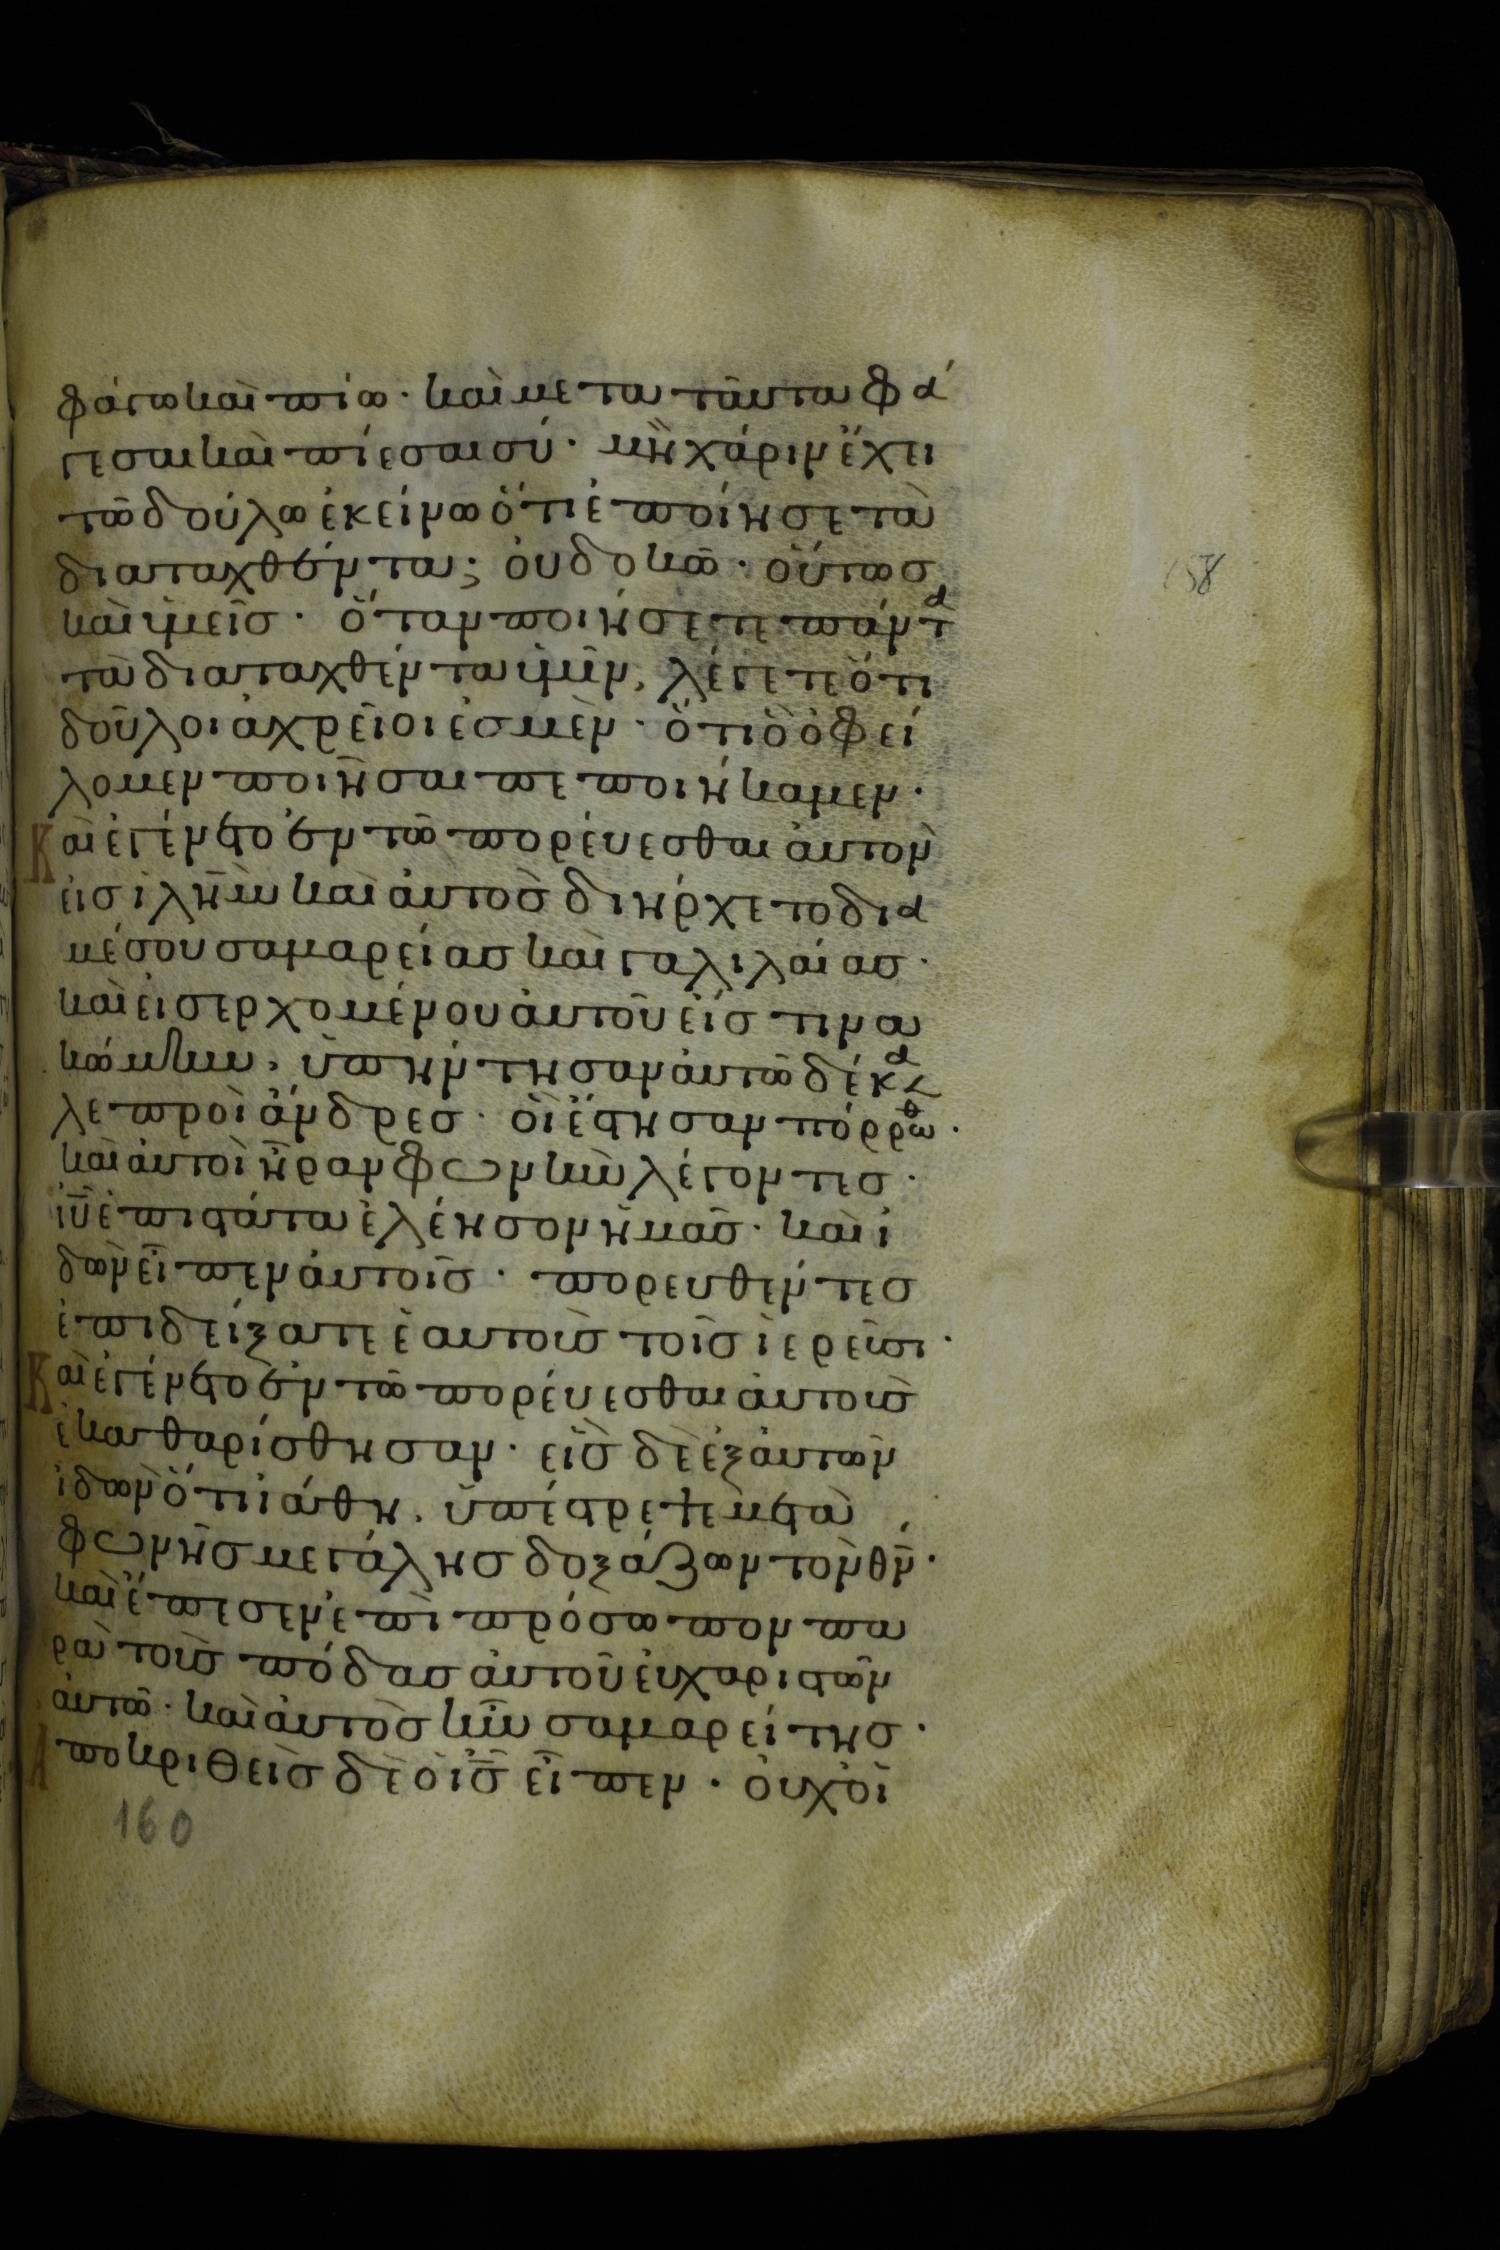 φάγω καὶ πίω· καὶ μετα ταῦτα φά
γεσαι καὶ πίεσαι σύ· μὴ χάριν ἔχει
τῶ δούλω ἐκείνω ὅτι ἐποίησε τὰ
διαταχθέντα; οὐ δοκῶ· οὕτωσ
καὶ ὑμεῖσ· ὅταν ποιήσετε πάντα
τὰ διαταχθέντα ὑμῖν, λέγετε ὅτι
δοῦλοι ἀχρεῖοι ἐσμὲν· ὅτι ὃ ὀφεί
λομεν ποιῆσαι πεποιήκαμεν·
Καὶ ἐγένετο ἐν τῶ πορέυεσθαι ἀυτὸν
ἐισ ἱλῆμ καὶ ἀυτὸσ διήρχετο δια
μέσου σαμαρείασ καὶ γαλιλαίασ·
καὶ ἐισερχομένου ἀυτοῦ εἴσ τινα
κώμην, ὑπήντησαν ἀυτῶ δέκα
λεπροὶ ἄνδρεσ· ὁὶ ἔστησαν πόρρωθ·
καὶ ἀυτοὶ ἦραν φωνὴν λέγοντεσ·
ιῦ ἐπιστάτα ἐλέησον ἡμᾶσ· καὶ ἰ
δὼν εἶπεν ἀυτοῖσ· πορευθέντεσ
ἐπιδείξατε ἑαυτοὺσ τοῖσ ἱερεῦσι·
Καὶ ἐγένετο ἐν τῶ πορέυεσθαι ἀυτοὺσ
ἐκαθαρίσθησαν· εἷσ δὲ ἐξ ἀυτῶν
ἰδὼν ὅτι ἰάθη, ὑπέστρεψε μετὰ
φωνῆσ μεγάλησ δοξάζων τὸν θν·
καὶ ἔπεσεν ἐπὶ πρόσωπον πα
ρὰ τοὺσ πόδασ ἀυτοῦ ἐυχαριστῶν
ἀυτῶ· καὶ ἀυτὸσ ἦν σαμαρείτησ·
Αποκριθεὶσ δὲ ὁ ισ εἶπεν· ὀυχ ὁι
160
158